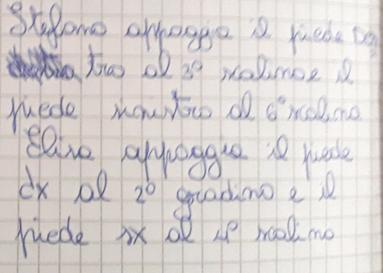 Stefano appoggia il piede Des
tro al 3° scalino e il
piede sinistro al 6° scalino
Elisa appoggia il piede
dx al 2° gradino e il
piede sx al 4° scalino